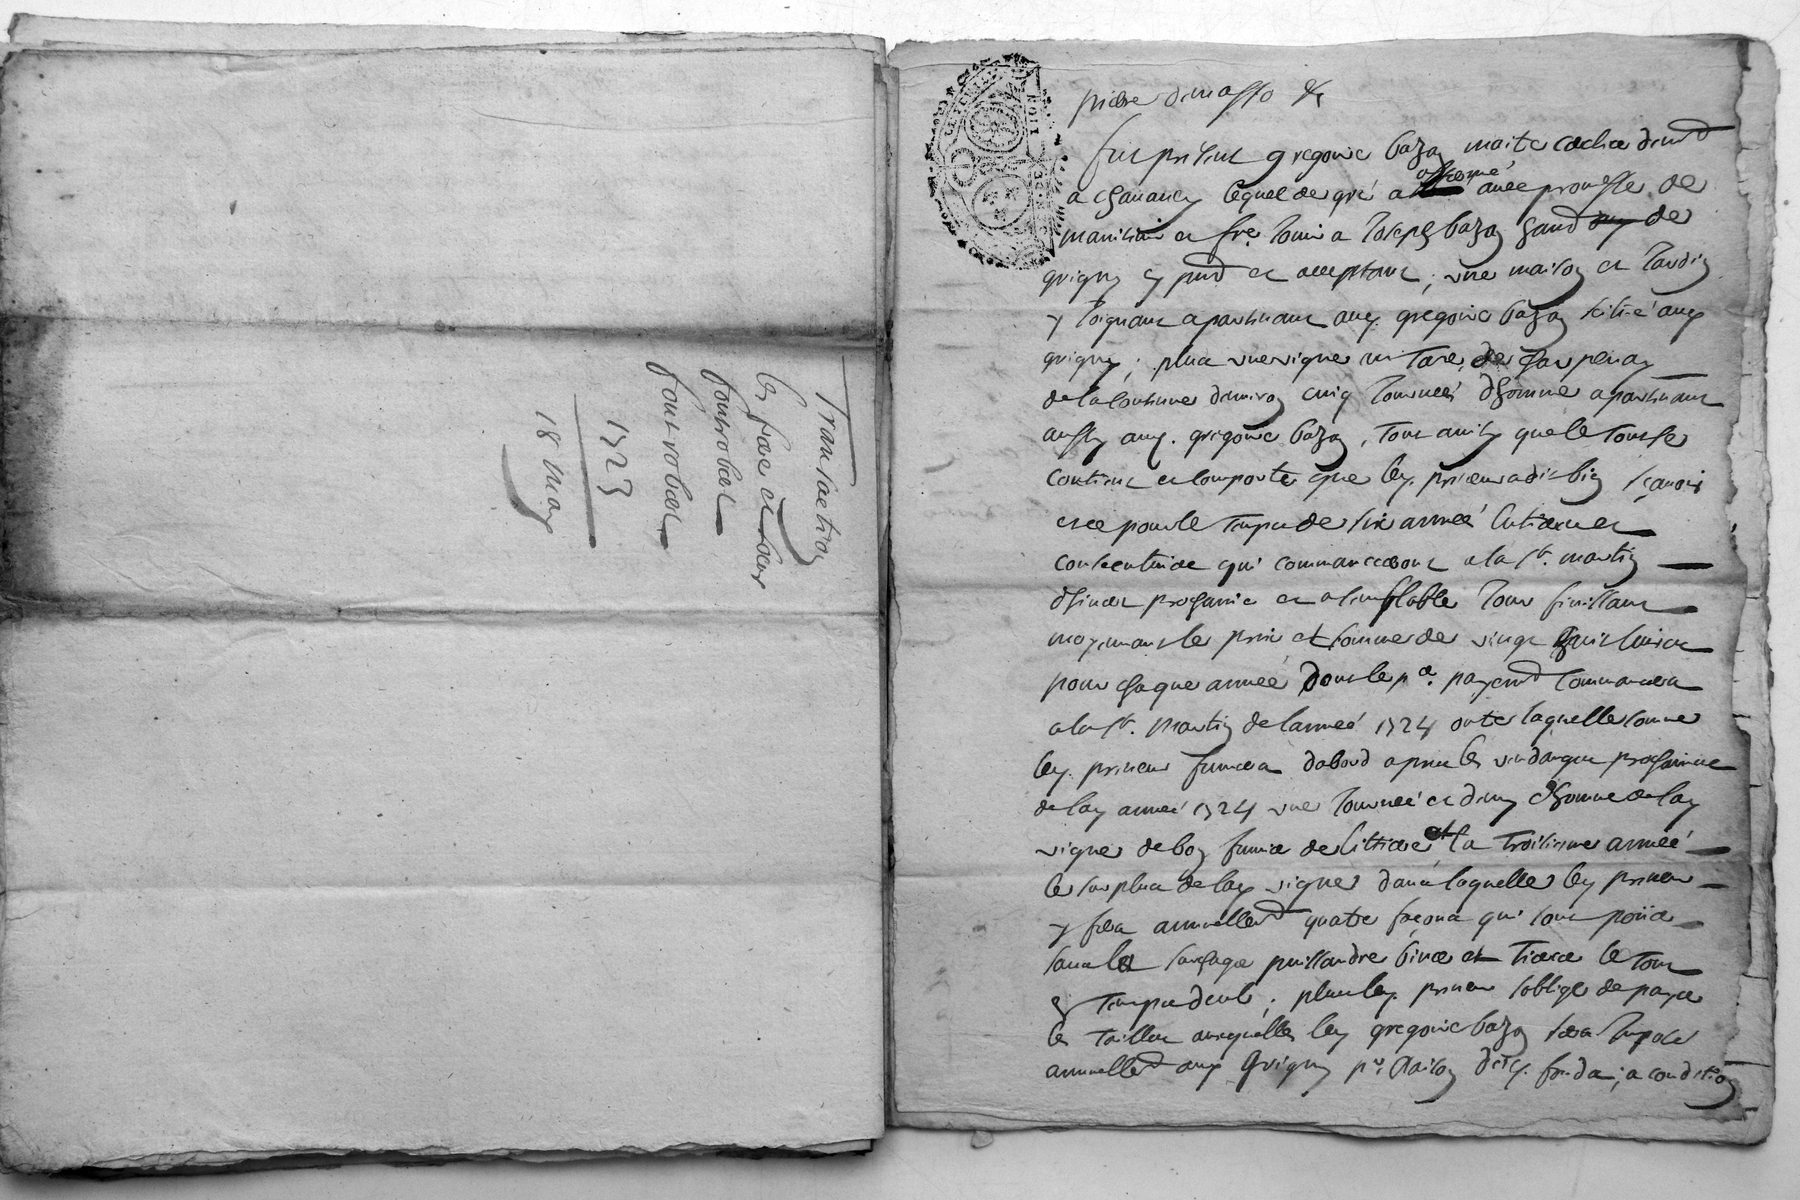 Transaction
les frere et soeur
fontrobert
fontrobert
1723
18 may
pierre dumasso &c
fut present gregoire bazoy maitre cocher demt
a chavancy lequel de gré a affermé avec promesse de
maintenir et fre Jouir a Joseph bazoy gand de
grigny y pnt et acceptant ; une maison et Jardin
y Joignant apartenant aud. gregoire bazoy scitué aud
grigny ; plus une vigne en
de la contenue denviron cinq Journeés dhomme apartenant
aussy aud. gregoire bazoy , tout ainsy que le tout se
contient et comporte que led. preneur a dit bien sçavoir
et ce pour le temps de six anneé Entieres et
consecutives qui commanceront a la st. martin
dhiver prochaine et a semblable Jour finissant
moyennant le prix et somme de vingt huit livres
pour chaque anneé dont le pr. payemt commancera
a la st. martin de lanneé 1724 outre laquelle somme
led. preneur fumera dabord apres les vendanges prochaine
de lad anneé 1724 une Journeé et demy dhomme de lad
vigne de bon fumier de littiere et la troisieme anneé
le surplus de lad vigne dans laquelle led preneur
y fera annuellemt quatre façons qui sont poüer
bine et tierce le tout
en temps deub ; plus led. preneur soblige de payer
les tailles ausquelles led gregoire bazoy sera Imposé
annuellemt aud grigny pr. Raison desd. fonds ; a condition